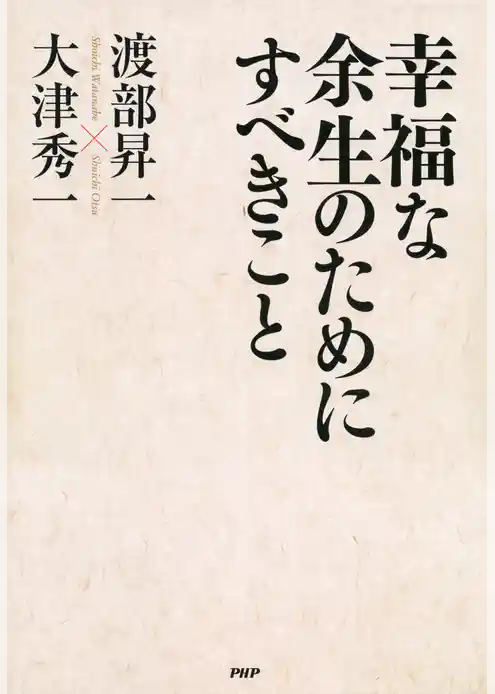 幸福な
余生のために
すべきこと
渡部昇一
Shoichi Watanabe
×
Shuichi Otsu
大津秀一
PHP